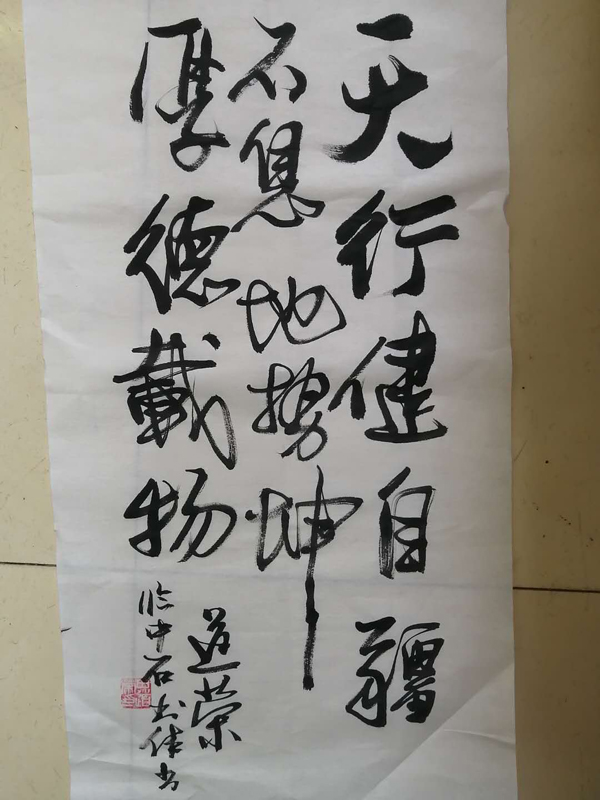 天行健自彊
不息地势坤
厚德載物
道荣
临中石书体书